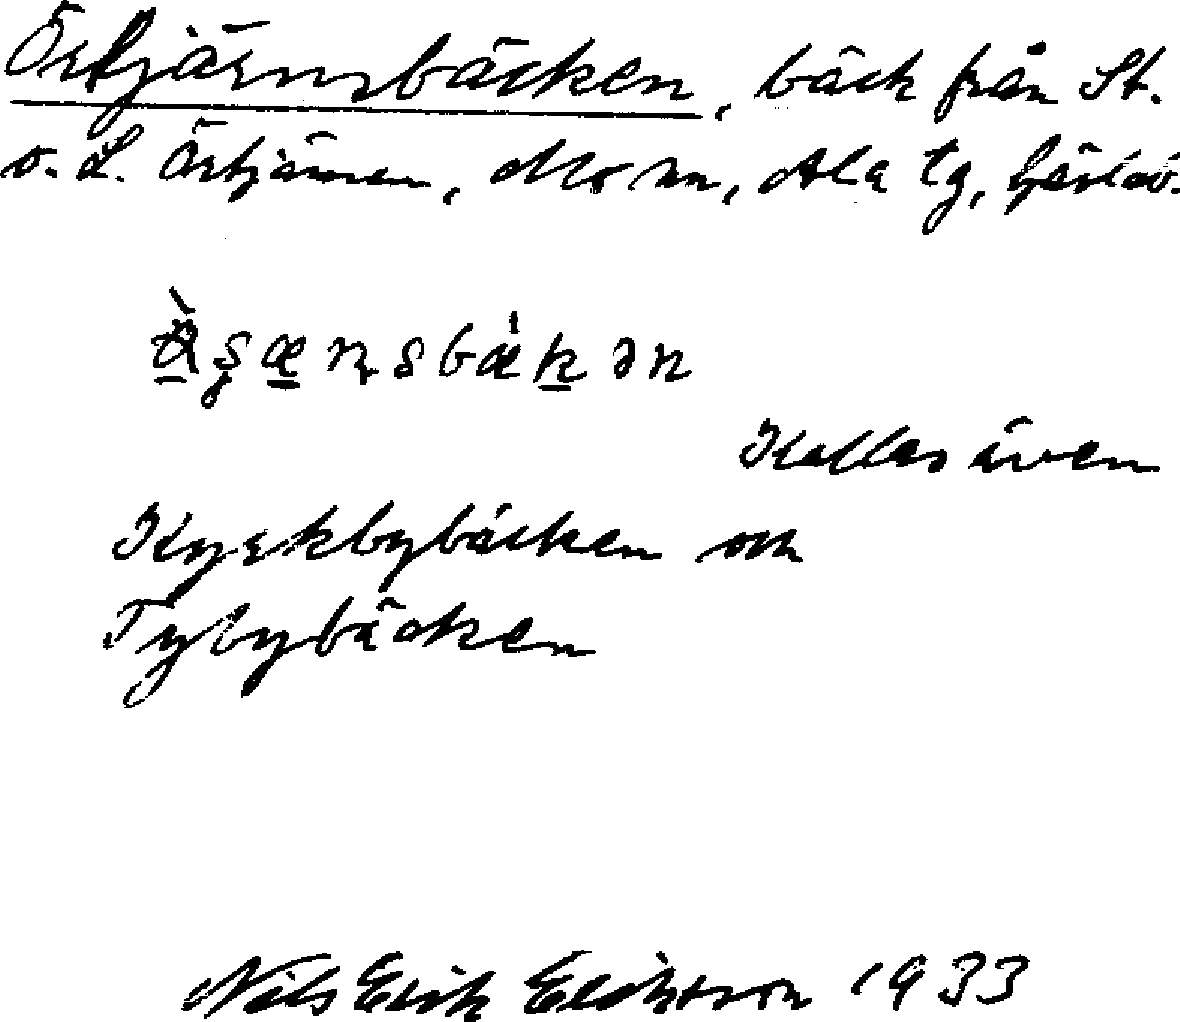 Örtjärnsbäcken, bäck från St.
o. L. Örtjärnen, Mo sn, Ala tg, Gävleb.
Kallas även
Kyrkbybäcken och
Tybybäcken
Nils Erik Eriksson 1933